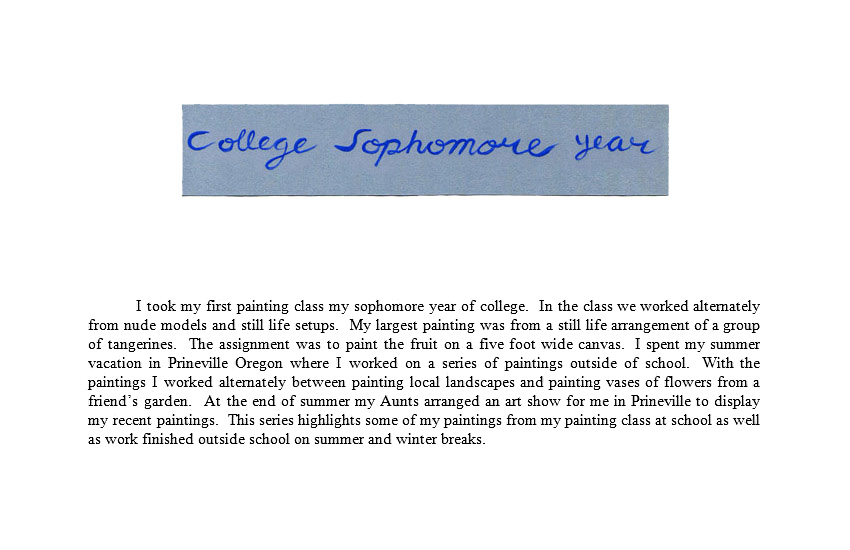 College Sophomore year
I took my first painting class my sophomore year of college. In the class we worked alternately
from nude models and still life setups. My largest painting was from a still life arrangement of a group
of tangerines. The assignment was to paint the fruit on a five foot wide canvas. I spent my summer
vacation in Prineville Oregon where I worked on a series of paintings outside of school. With the
paintings I worked alternately between painting local landscapes and painting vases of flowers from a
friend's garden. At the end of summer my Aunts arranged an art show for me in Prineville to display
my recent paintings. This series highlights some of my paintings from my painting class at school as well
as work finished outside school on summer and winter breaks.